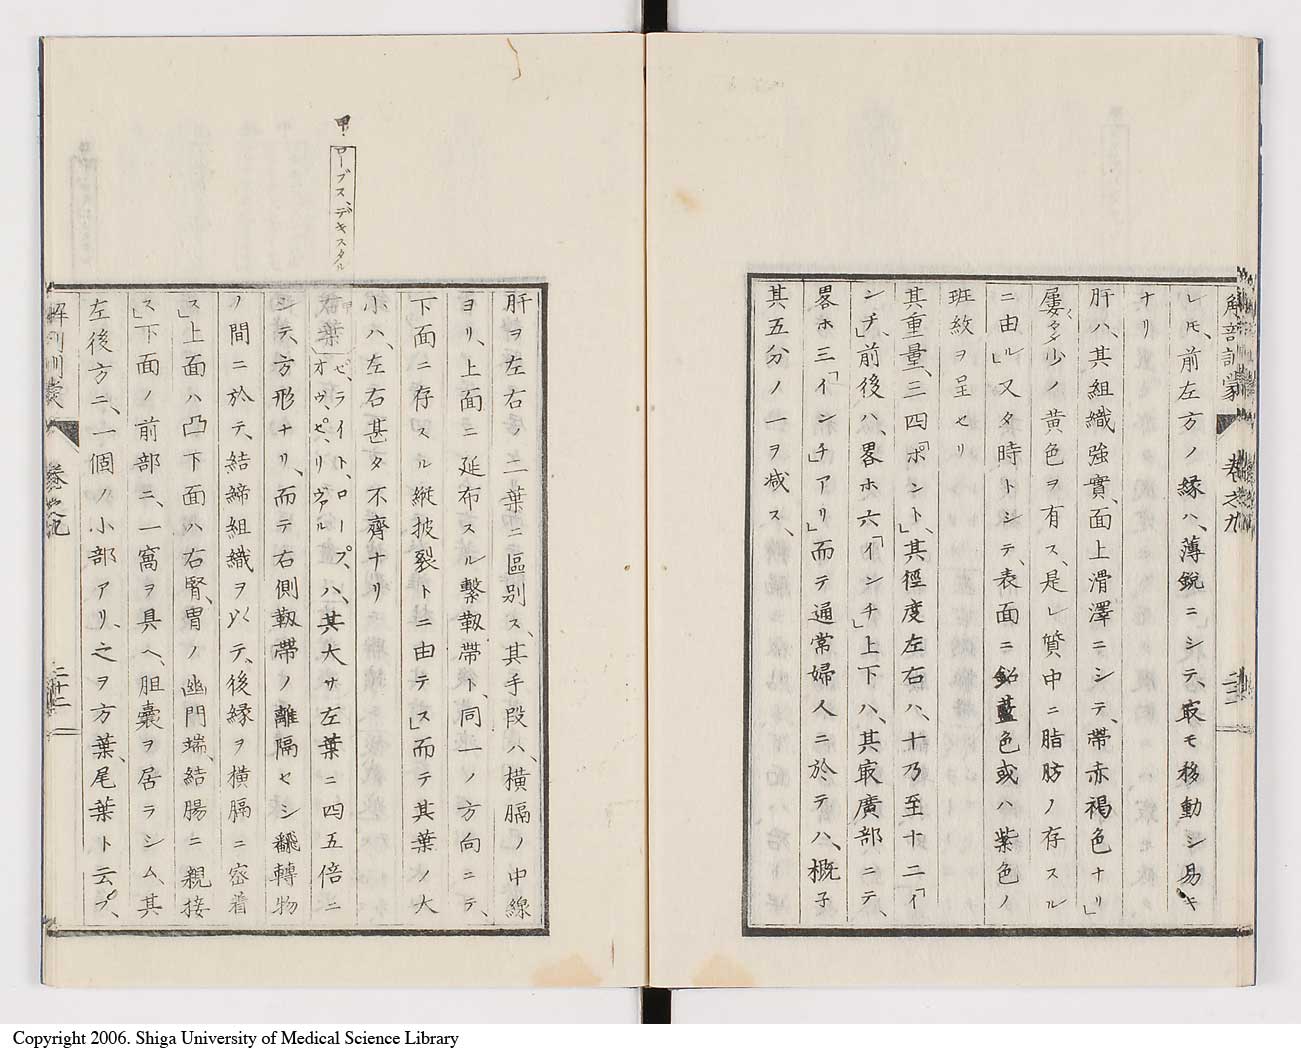 解剖訓蒙 巻之九
レ𪜈、前左方ノ縁ハ、薄鋭ニシテ、㝡モ移動シ易キ
ナリ
肝ハ、其組織強實、面上滑澤ニシテ、帶赤褐色ナリ」
屢々多少ノ黄色ヲ有ス、是レ質中ニ脂肪ノ存スル
ニ由ル」又タ時トシテ、表面ニ鉛藍色或ハ紫色ノ
斑紋ヲ呈セリ
其重量、三四「ポント」、其徑度左右ハ、十乃至十二「イ
ンチ」、前後ハ、畧ホ六「インチ」上下ハ、其㝡廣部ニテ、
畧ホ三「インチ」アリ」而テ通常婦人ニ於テハ、概子
其五分ノ一ヲ减ス、
甲 ローブス、デキスタル
肝ヲ左右ノ二葉ニ區別ス、其手段ハ、横膈ノ中線
ヨリ、上面ニ延布スル繋靱帶ト、同一ノ方向ニテ、
下面ニ存スル縦披裂トニ由テス」而テ其葉ノ大
小ハ、左右甚タ不齊ナリ
甲 葉 ゼ、ライト、ローブ、オヴ、ゼ、リヴァル ハ、其大サ左葉ニ四五倍ニ
シテ、方形ナリ、而テ右側靱帶ノ離隔セシ飜轉物
ノ間ニ於テ、結締組織ヲ以テ、後縁ヲ横膈ニ密着
ス」上面ハ凸下面ハ右腎、胃ノ幽門端、結腸ニ親接
ス」下面ノ前部ニ、一窩ヲ具ヘ、胆嚢ヲ居ラシム、其
左後方ニ、一個ノ小部アリ、之ヲ方葉、尾葉ト云フ、
解剖訓蒙 巻之九 二十二